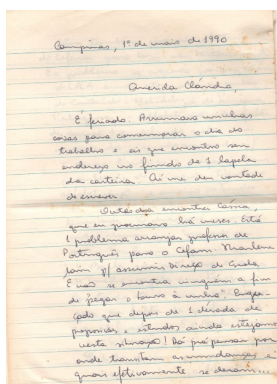 Campinas, 1º de maio de 1990
Querida Cláudia,
É feriado. Arrumava minhas
coisas para comemorar o dia do
trabalho e eis que encontro seu
endereço no fundo de 1 lapela
da carteira. Aí me deu vontade
de escrever.
Outro dia encontrei
que eu procurava há meses. Está
1 problema arranjar professor de
Português para o Cefam. Marlene
saiu p/ assumir Direção de Escola.
E não se encontra ninguém a fim
de "pegar o touro à unha".
çado que depois de 1 década de
propostas e estudos ainda estejamos
nesta situação! Dá prá pensar por
onde transitam as mudanças e
quais efetivamente se deram...